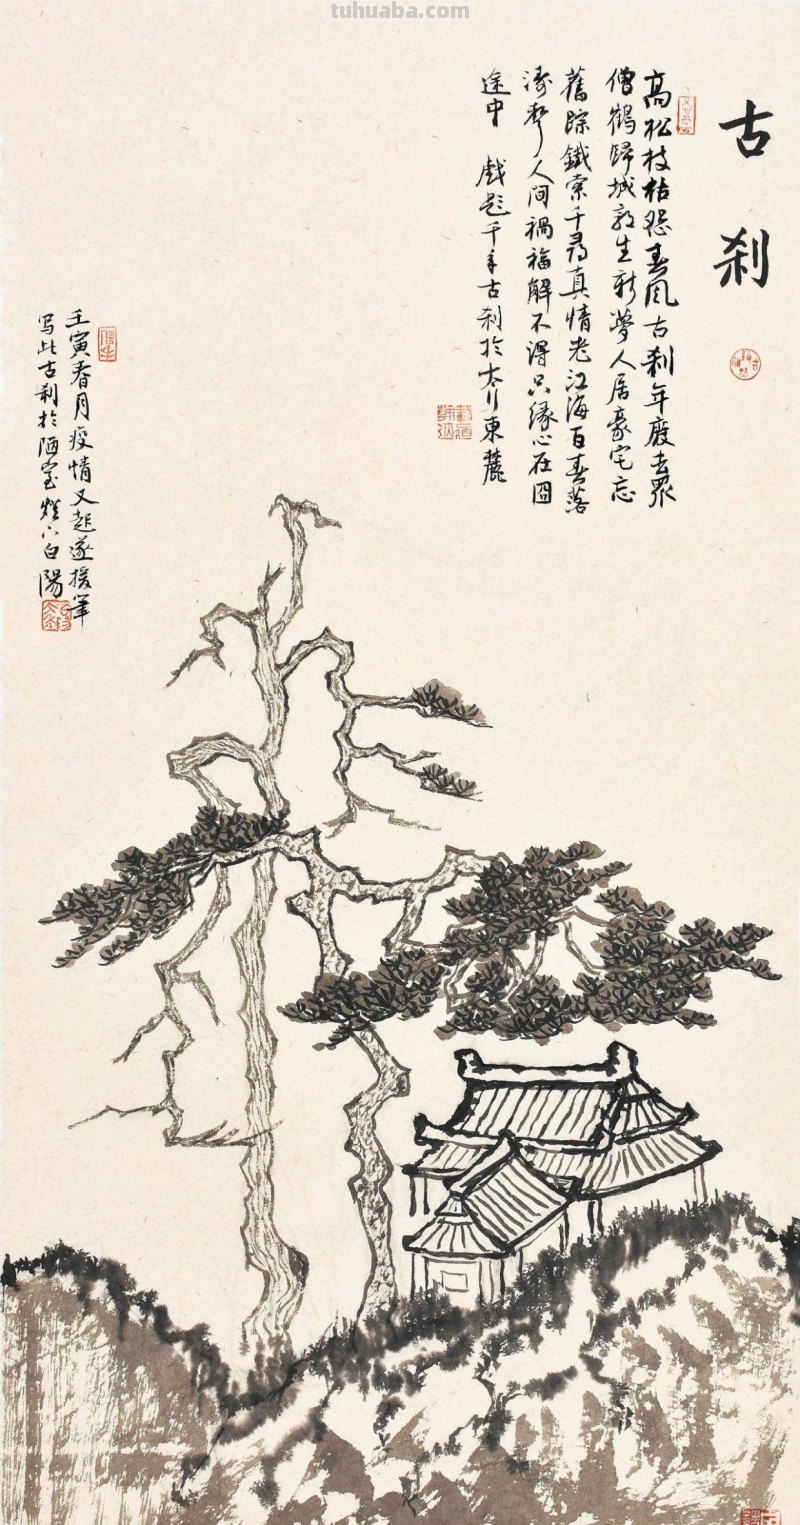 tuhuaba.com
古刹
高松枝枯怨春风古刹年废去眾
僧鶴歸城郭生新夢人居豪宅忘
舊踪鐵索千尋真情老江海百春落
濤聲人间禍福解不得只緣心在囧
途中 戲题千年古刹於太行東麓
壬寅春月疫情又起遂援筆
写此古刹於陋室 白陽